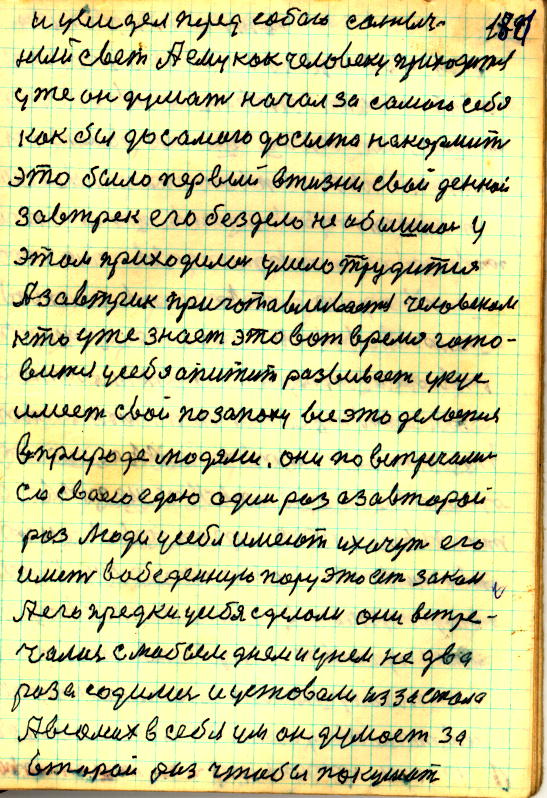 181
и увидел перед собою солныч-
ный свет А ему как человеку приходится
уже он думат начал за самого себя
как бы до самого досыта накормит
это было первый в жизни свой денной
завтрек его бездело не
этом приходилос умело трудится
А завтрик приготавливается человеком
кто уже знает это вот время гото-
вится у себя апитит развивает укус
имеет свой по запаху все это делается
в природе людями. они повстречалис
со своею едою один раз а за второй
раз люди у себя имеют и хочут его
имет в обеденную пору это ест закон
А его предки у себя сделали они встре-
чалис с любым днем и у нем не два
раза содилис и уставали из за стола
А в головах в себя ум он думает за
второй раз чтобы покушат